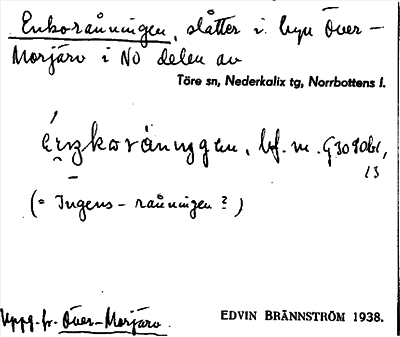 Enkoraũningen, slåtter i byn Över-
Morjärv i NO delen av
Töre sn, Nederkalix tg, Norrbottens l.
bf. m.
(= Ingens-raũningen?)
Uppg. fr. Över-Morjärv.
EDVIN BRÄNNSTRÖM 1938.